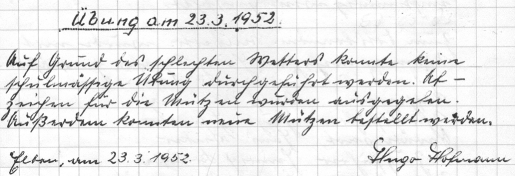 Übung am 23.3.1952.
Auf Grund des schlechten Wetters konnte keine
schulmässige Übung durchgeführt werden. Ab-
zeichen für die Mützen wurden ausgegeben.
Außerdem konnten neue Mützen bestellt werden.
Elben, am 23.3.1952. Hugo Hofmann